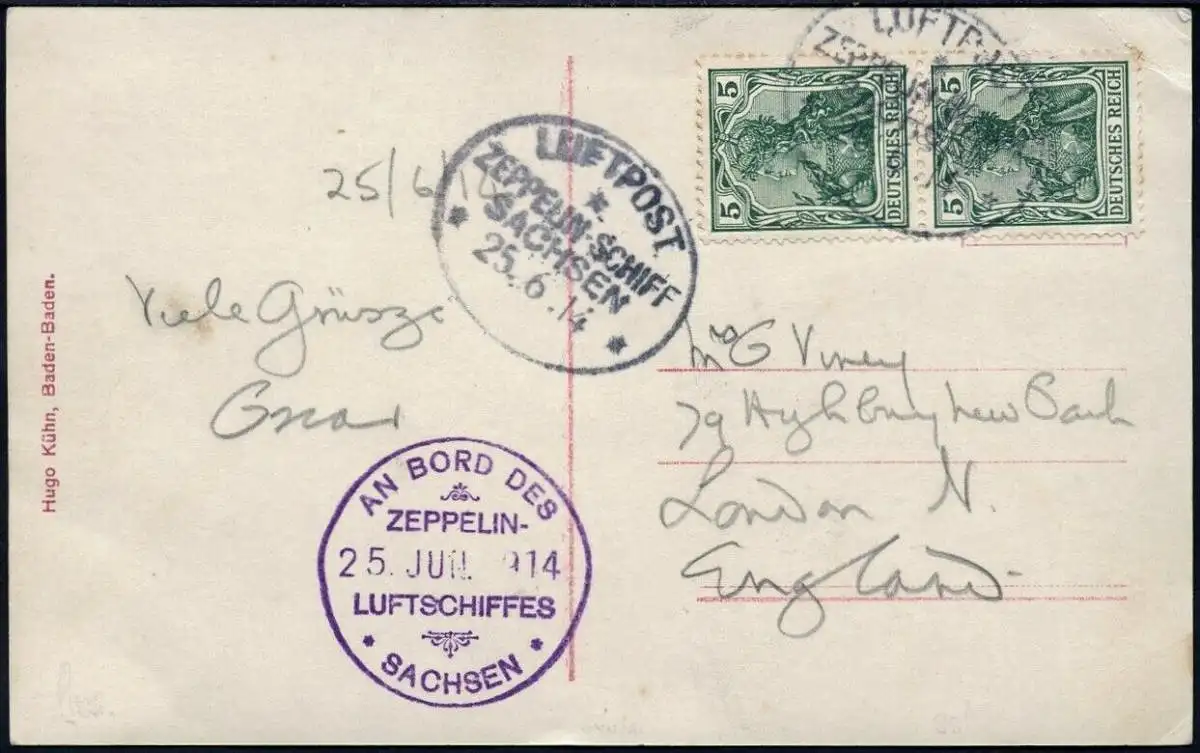 LUFTPOST
ZEPPELIN
5 5 DEUTSCHES REICH
5 5 DEUTSCHES REICH
LUFTPOST
ZEPPELIN-SCHIFF
SACHSEN
25.6.14
25/6/
Viele Grüsze
Hugo Kühn, Baden-Baden.
AN BORD DES
ZEPPELIN-
25. JUN. 914
LUFTSCHIFFES
SACHSEN
Mrs G Viney
79 Highbury New Park
London N.
England